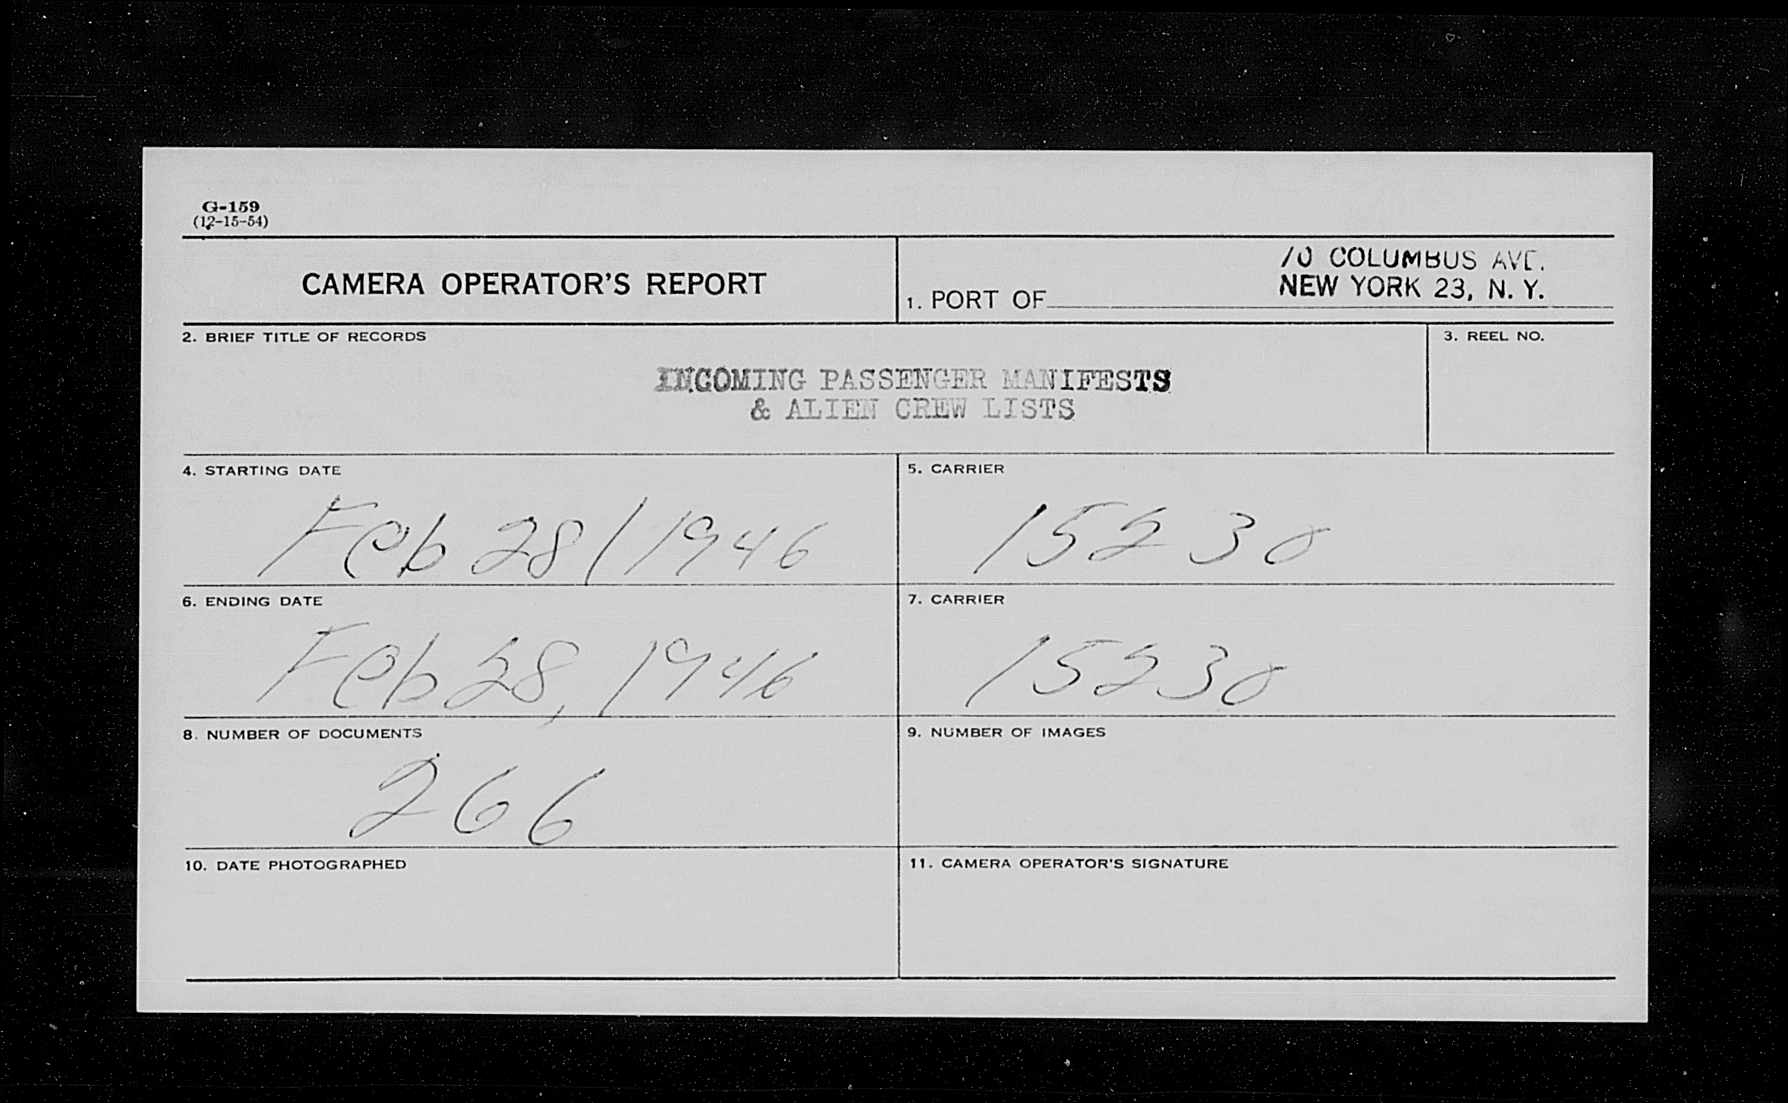 G-159
(12-15-54)
CAMERA OPERATOR'S REPORT
1. PORT OF
70 COLUMBUS AVE.
NEW YORK 23, N. Y.
2. BRIEF TITLE OF RECORDS
INCOMING PASSENGER MANIFESTS
& ALIEN CREW LISTS
3. REEL NO.
4. STARTING DATE
Feb 28/1946
5. CARRIER
15230
6. ENDING DATE
Feb 28, 1946
7. CARRIER
15230
8. NUMBER OF DOCUMENTS
266
9. NUMBER OF IMAGES
10. DATE PHOTOGRAPHED
11. CAMERA OPERATOR'S SIGNATURE